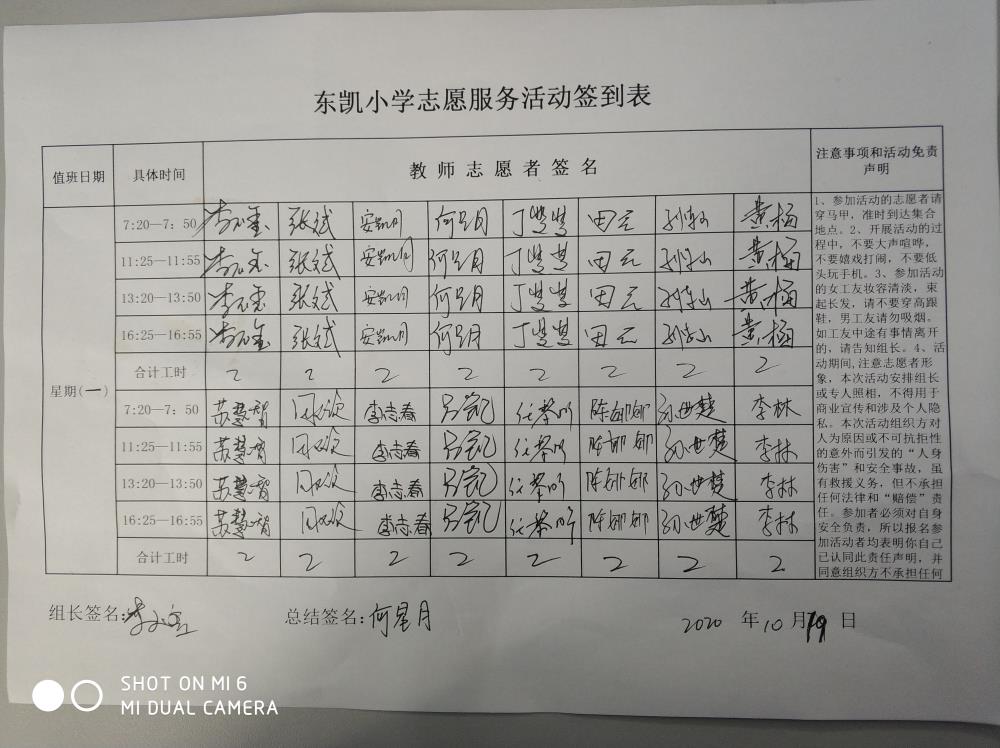 东凯小学志愿服务活动签到表
值班日期 具体时间 教师志愿者签名 注意事项和活动免责声明
星期(一)
7:20—7:50 张斌 安凯月 何星月 丁慧慧 田云 黄杨
11:25—11:55 张斌 安凯月 何星月 丁慧慧 田云 黄杨
13:20—13:50 张斌 安凯月 何星月 丁慧慧 田云 黄杨
16:25—16:55 张斌 安凯月 何星月 丁慧慧 田云 黄杨
合计工时 2 2 2 2 2 2 2 2
7:20—7:50 苏慧智 李志春 吕凯 陈娜娜 孙世楚 李林
11:25—11:55 苏慧智 李志春 吕凯 陈娜娜 孙世楚 李林
13:20—13:50 苏慧智 李志春 吕凯 陈娜娜 孙世楚 李林
16:25—16:55 苏慧智 李志春 吕凯 陈娜娜 孙世楚 李林
合计工时 2 2 2 2 2 2 2 2
1、参加活动的志愿者请
穿马甲，准时到达集合
地点。2、开展活动的过
程中，不要大声喧哗，
不要嬉戏打闹，不要低
头玩手机。3、参加活动
的女工友妆容清淡，束
起长发，请不要穿高跟
鞋，男工友请勿吸烟。
如工友中途有事情离开
的，请告知组长。4、活
动期间,注意志愿者形
象，本次活动安排组长
或专人照相，不得用于
商业宣传和涉及个人隐
私。本次活动组织方对
人为原因或不可抗拒性
的意外而引发的“人身
伤害”和安全事故，虽
有救援义务，但不承担
任何法律和“赔偿”责
任。参加者必须对自身
安全负责，所以报名参
加活动者均表明你自己
已认同此责任声明，并
同意组织方不承担任何
组长签名: 总结签名:何星月 2020 年 10 月 19 日
SHOT ON MI 6
MI DUAL CAMERA